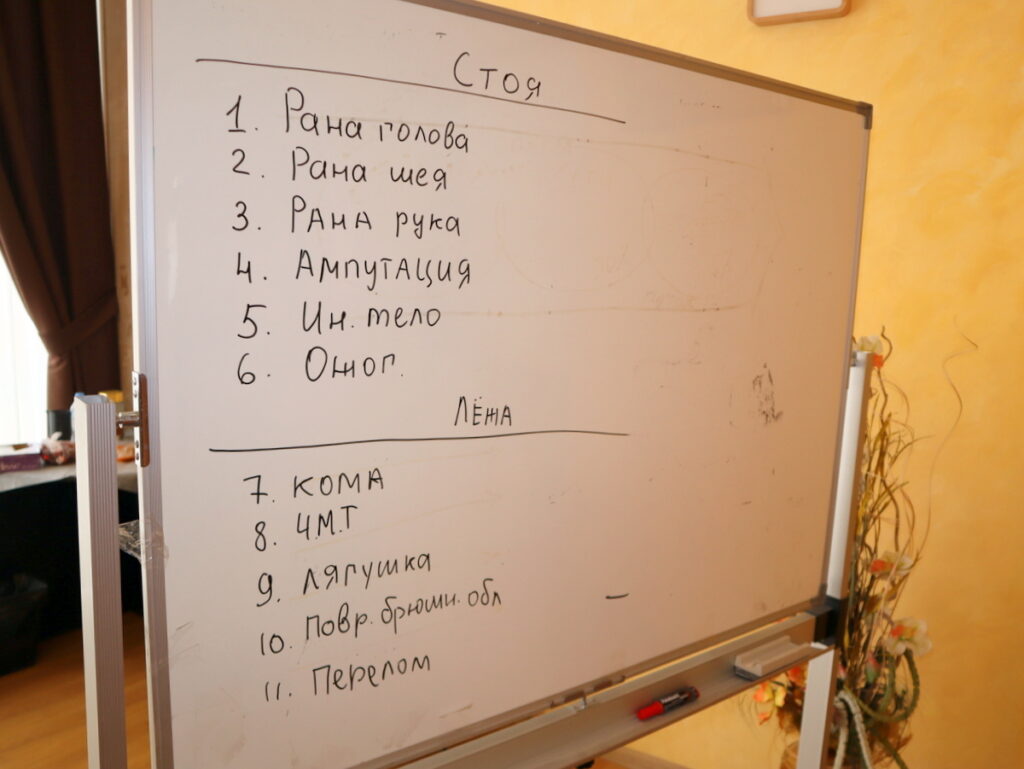 Стоя
1. Рана голова
2. Рана шея
3. Рана рука
4. Ампутация
5. Ин. тело
6. Ожог.
Лёжа
7. кома
8. Ч.М.Т
9. лягушка
10. Повр. брюшн. обл
11. Перелом